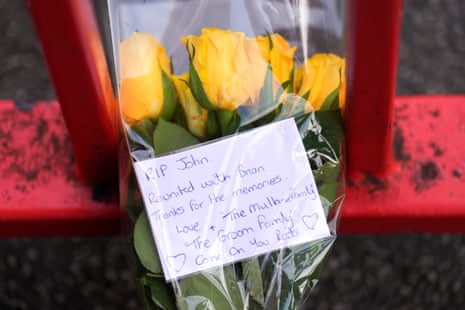 RIP John.
Reunited with Brian
Thanks for the memories.
Love + The Mullane family
"The Groom Family"
Come On You Reds